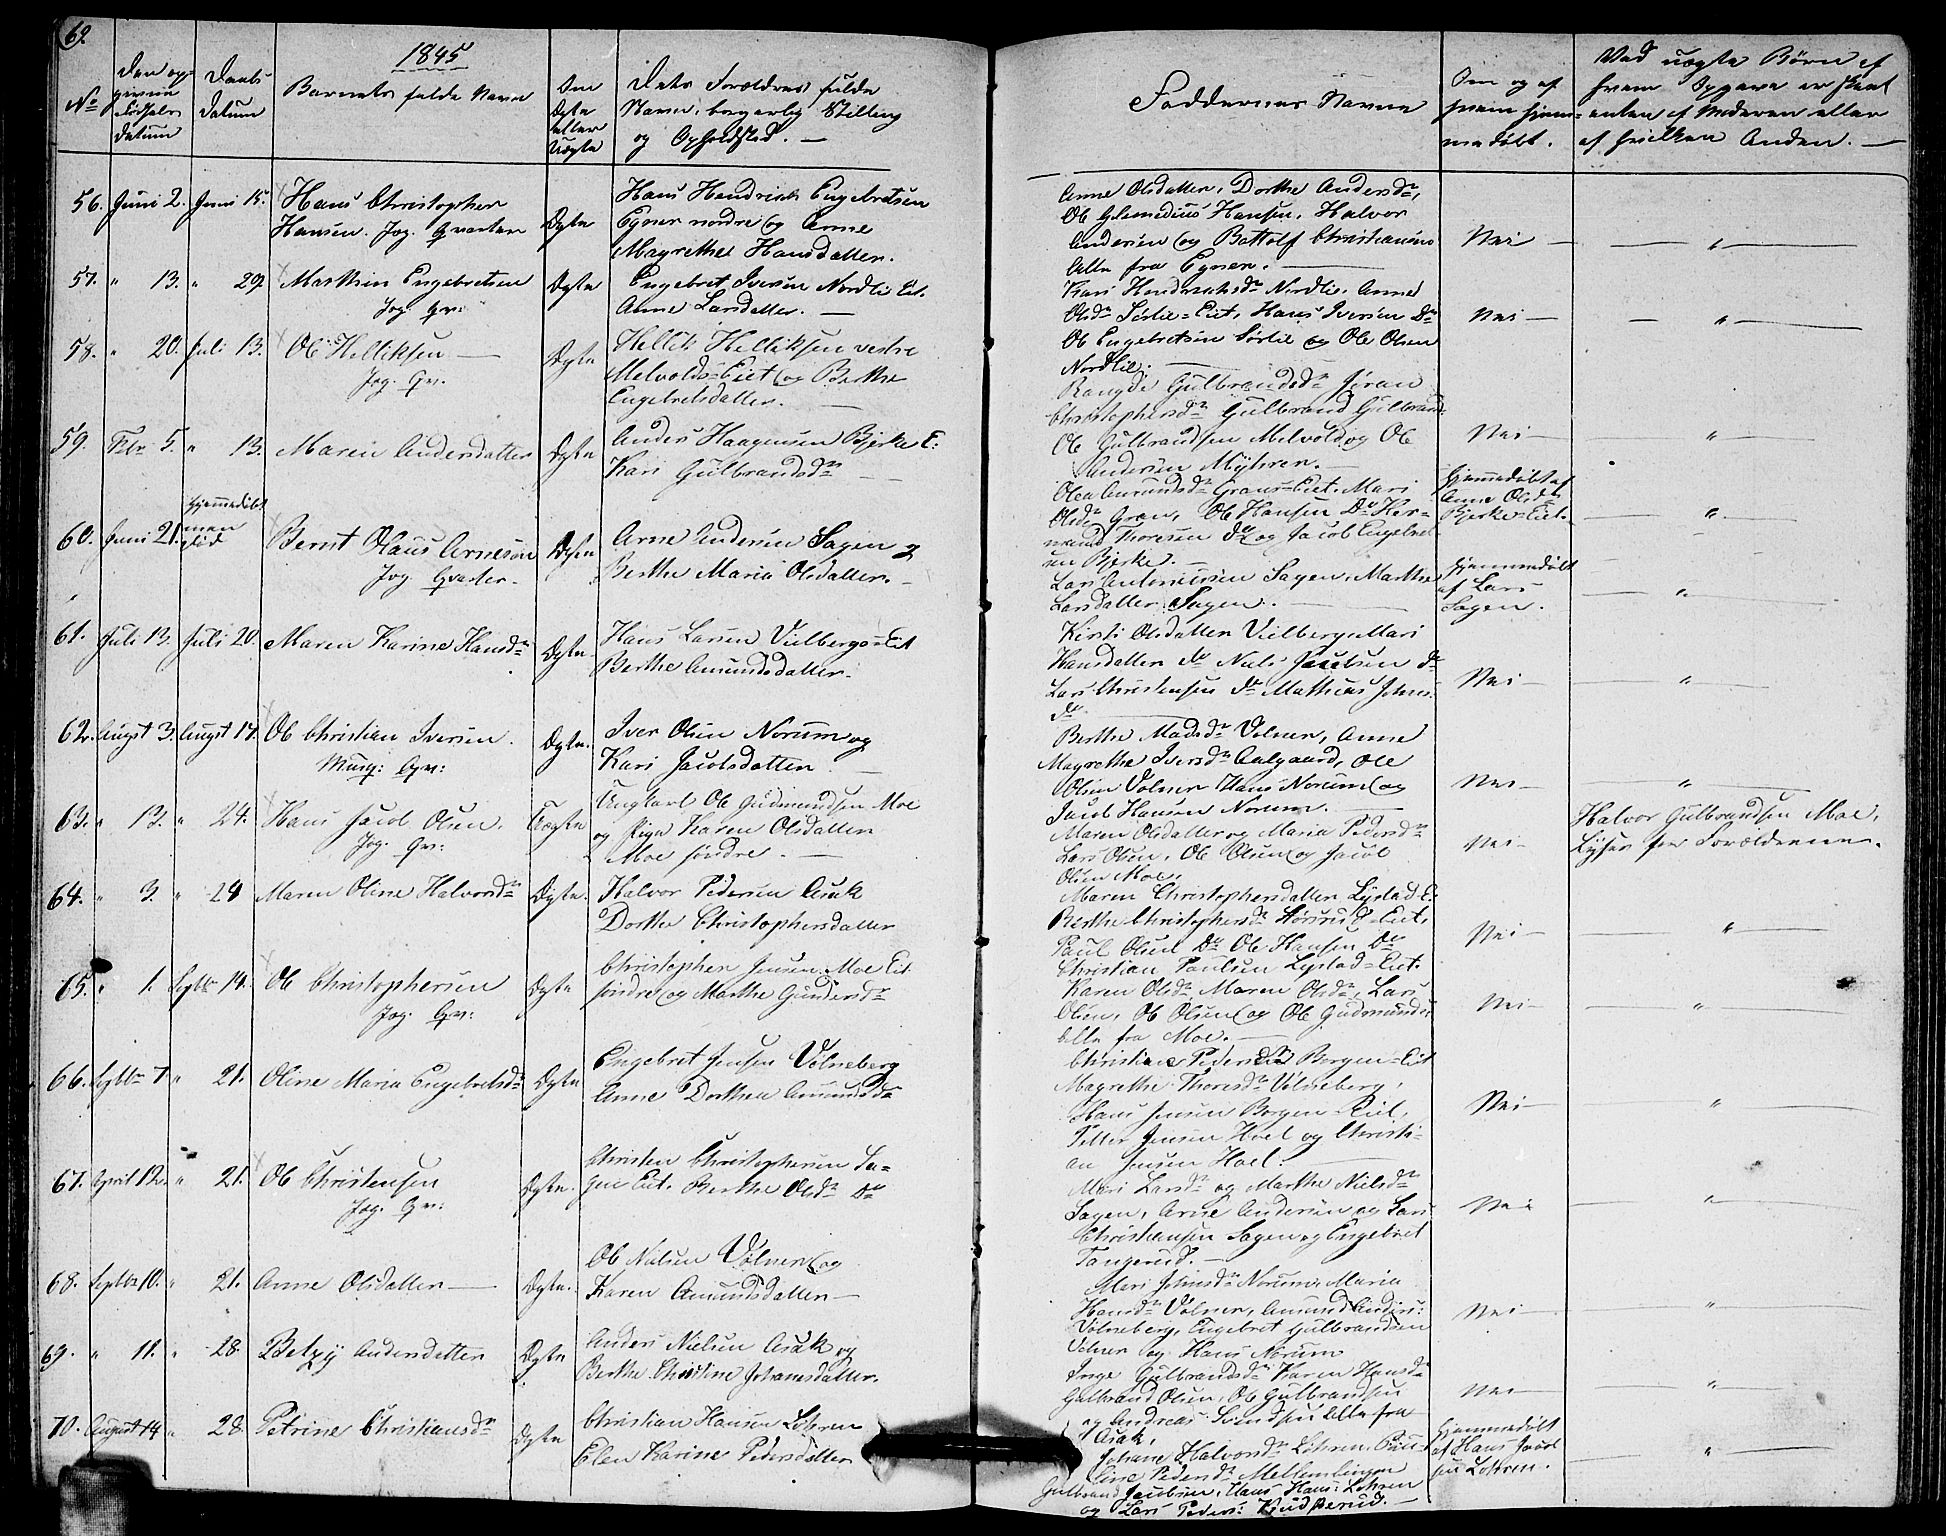 62.
1845
No
Den opgivne Fødsels datum
Daabs Datum
Barnets fulde Navn
Om Ægte eller Uægte
Dets Forældres fulde Navn, borgerlig Stilling og Opholdsted. —
Faddernes Navne
Om og af hvem hjemmedøbt.
Ved uægte Børn af hvem Opgave er skeet enten af Moderen eller af hvilken Anden. —
56. Juni 2. Juni 15. Hans Christopher
Hansen. Jog. Qvarter
Ægte
Hans Hendrich Engebretsen
Egner nordre og Anne
Magrethe Hansdatter.
Anne Olsdatter, Dorthe Andersdr,
Hansen, Halvor
Andersen og Bottolf Christiansen
alle fra Egner.
Nei — "
57. " 13. " 29. Marthin Engebretsen
Jog. Qv:
Ægte
Engebret Iversen Nordli Eit.
Anne Larsdatter. —
Kari Hendrichsdr Nordli, Anne
Olsdr Sørlie-Eiet, Hans Iversen Do
Ole Engebretsen Sørlie og Ole Olsen
Nordlie.
Nei — "
58. " 20. Juli 13. Ole Helliksen —
Jog. Qv.
Ægte
Hellik Helliksen vestre
Melvolds-Eiet og Berthe
Engebretsdatter. —
Gulbrandsdr Jøran
Christophersdr Gulbrand Gulbrands
Ole Gulbrandsen Melvold og Ole
Andersen Myhren.
Nei — "
59. Febr 5. " 13. Maren Andersdatter
Ægte
Anders Haagensen Bjerke E:
Kari Gulbrandsdr —
Amundsdr Grans-Eiet, Mari
Olsdr Gran, Ole Hansen Do
Thoresen do og Jacob Engebret
sen Bjerke. —
hjemmedøbt af
Anne Olsdr
Bjerke-Eiet.
"
60. Juni 21. hjemmedøbt
men
død
Bernt Olaus Arnesen
Jog. Qvarter.
Ægte
Arne Andersen Sagen
Berthe Maria Olsdatter.
Lars Sagen, Marthe
Larsdatter Sagen.
hjemmedøbt
af Lars
Sagen.
"
61. Juli 13. Juli 20. Maren Karine Hansdr
Ægte
Hans Larsen Vilbergs-Eit
Berthe Amundsdatter.
Kirsti Olsdatter Vielberg, Mari
Hansdatter do Niels Jacobsen do
Lars Christensen do Mathias Johns.
do
Nei — "
62. Augst 3. Augst 17. Ole Christian Iversen.
Musq: Qv:
Ægte.
Iver Olsen Norum og
Kari Jacobsdatter. —
Berthe Madsdr Volner, Anne
Magrethe Iversdr Aalgaard, Ole
Olsen Volner, Hans Norum og
Jacob Hansen Norum.
Nei — "
63. " 13. " 24. Hans Jacob Olsen.
Jog. Qv:
Uægte
Ungkarl Ole Gudmundsen Moe
og Pige Karen Olsdatter
Moe søndre. —
Maren Olsdatter og Maria Pedersdr
Lars Olsen, Ole Olsen og Jacob
Olsen Moe.
Nei —
Halvor Gulbrandsen Moe,
for Forældrene.
64. " 3. " 24 Maren Oline Halvorsdr
Ægte.
Halvor Pedersen Asak
Dorthe Christophersdatter
Maren Christophersdatter Lystad E:
Berthe Christophersdr Eiet,
Paul Olsen Do Ole Hansen Do
Christian Paulsen Lystad-Eiet.
Nei — "
65. " 1. Septbr 14. Ole Christophersen
Jog. Qv:
Ægte
Christopher Jensen Moe Eit
søndre og Marthe Gundersdr
Karen Olsdr, Maren Olsdr, Lars
Olsen, Ole Olsen og Ole Gudmunds.
alle fra Moe. —
Nei — "
66. Septbr 7. " 21. Oline Maria Engebretsdr
Ægte
Engebret Jensen Volneberg
Anne Dorthea Amundsdr
Christiane Pedersdr Borgen-Eiet
Magrethe Thoresdr Volneberg,
Hans Jensen Borgen Eiet,
Petter Jensen Hoel og Christi-
an Jensen Hoel.
Nei — "
67. April 12. " 21. Ole Christensen
Jog. Qv:
Ægte.
Christen Christophersen Sa-
gen Eiet. Berthe Olsdr Do
Mari Larsdr og Marthe Nielsdr
Sagen, Arne Andersen og Lars
Christiansen Sagen og Engebret
Tangerud. —
Nei — "
68. Septbr 10. " 21. Anne Olsdatter —
Ægte.
Ole Nielsen Volner og
Karen Amundsdatter —
Mari Johnsdr Norum, Maria
Hansdr Volner, Amund Anders:
Volneberg, Engebret Gulbrandsen
Volner og Hans Norum
Nei — "
69. " 11. " 28. Betzy Andersdatter
Ægte
Anders Nielsen Asak og
Berthe Christine Johannesdatter.
Inge Gulbrandsdr Karen Hansdr
Gulbrand Olsen, Ole Gulbrandsen
og Andreas Svendsen alle fra
Asak.
Nei — "
70. August 14 " 28. Petrine Christiansdr
Ægte
Christian Hansen Lohren
Elen Karine Pedersdatter
Johane Halvorsdr Lohren, Pau-
line Pedersdr Mellemlingen
Gulbrand Jacobsen, Hans Hans: Lohren
og Lars Peders: Knudserud. —
hjemmedøbt
af Hans Jacob
sen Lohren.
"